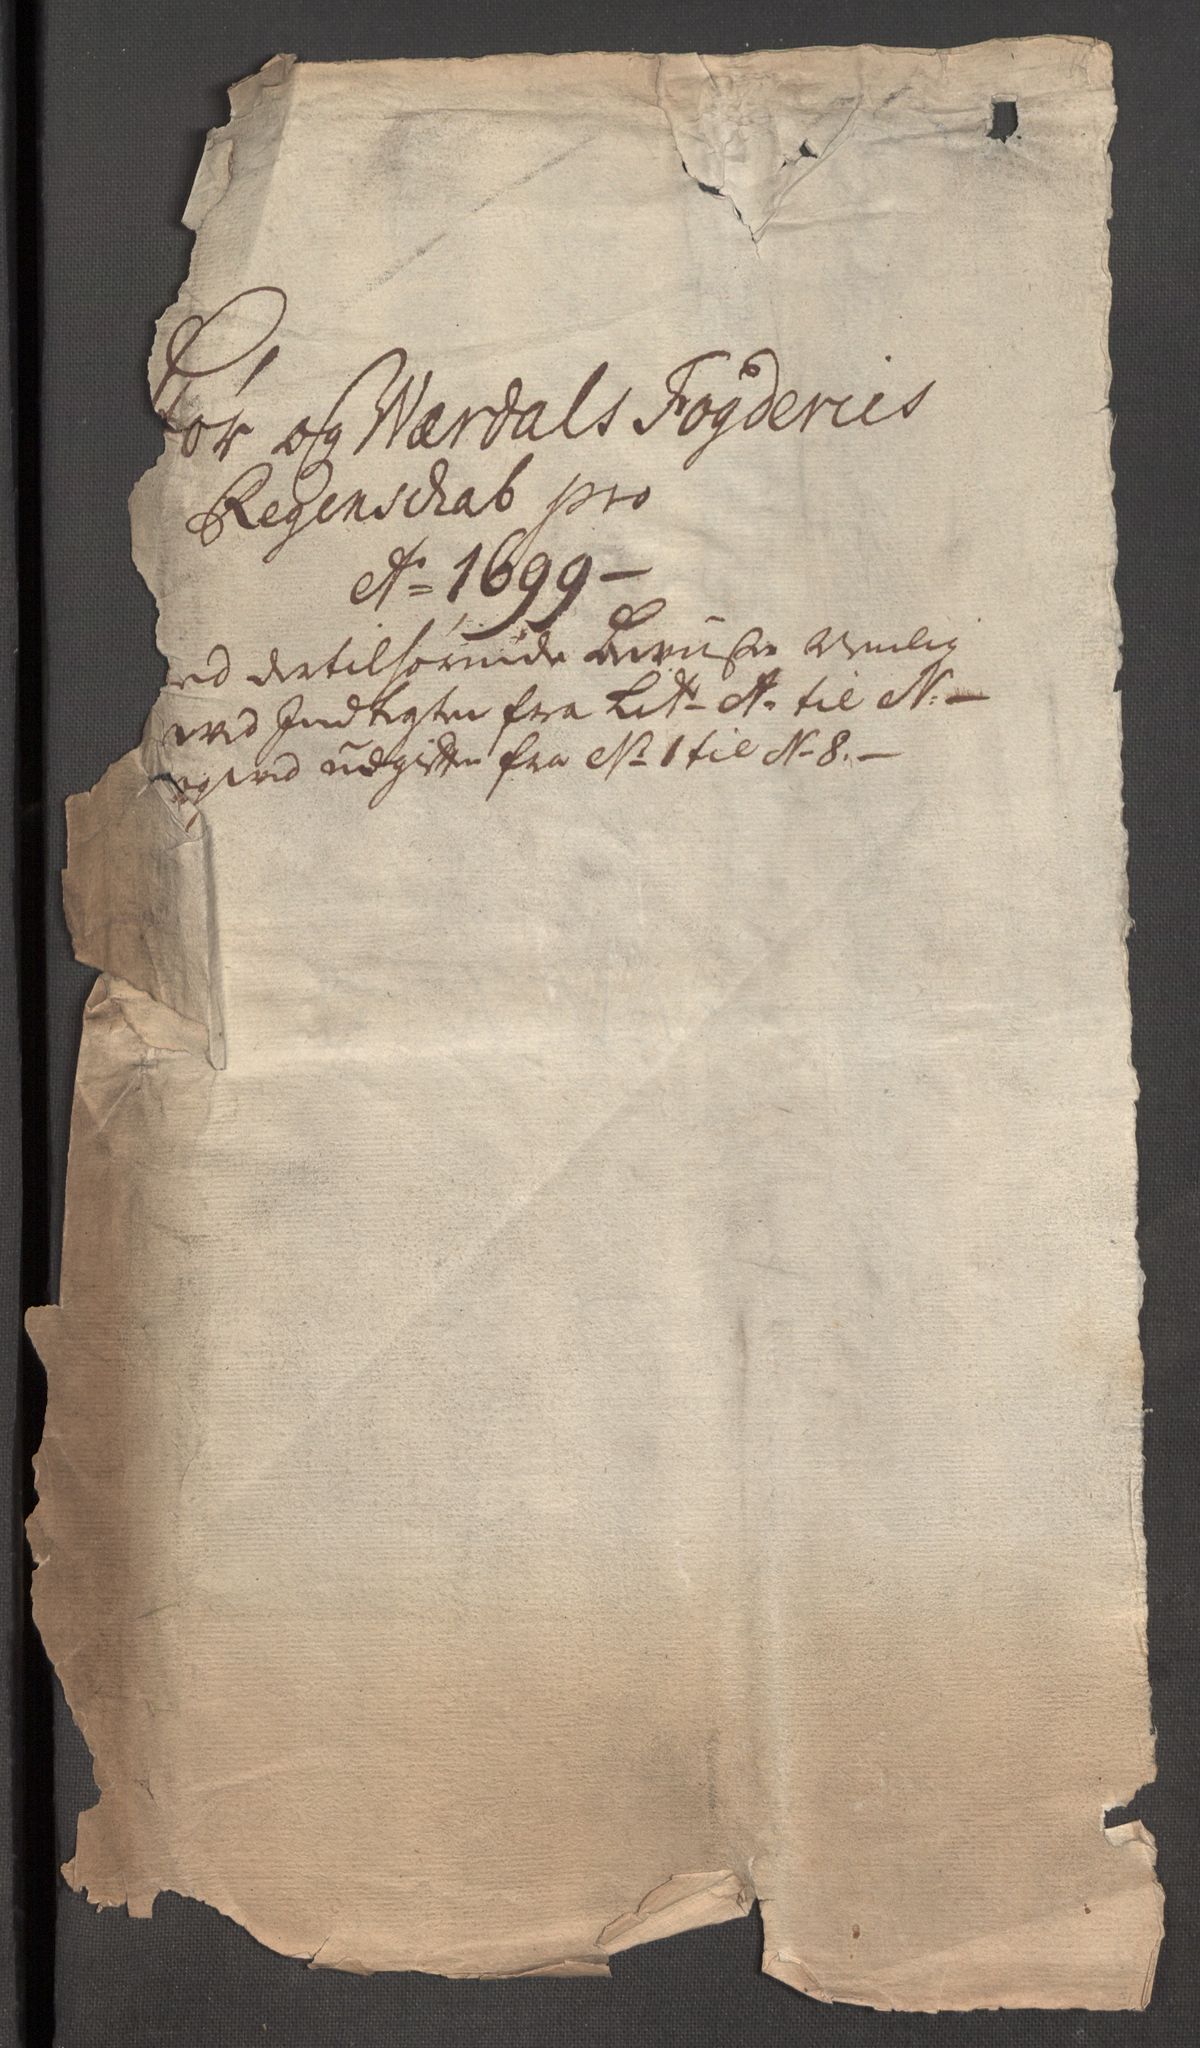 Stør og Værdals Fogderies
Regenschab pro
Ao 1699 –
ed dertilhørende Beviiser Nemlig
ved Indtegten fra Litr A. til N: –
og ved udgiften fra No 1 til No 8. –